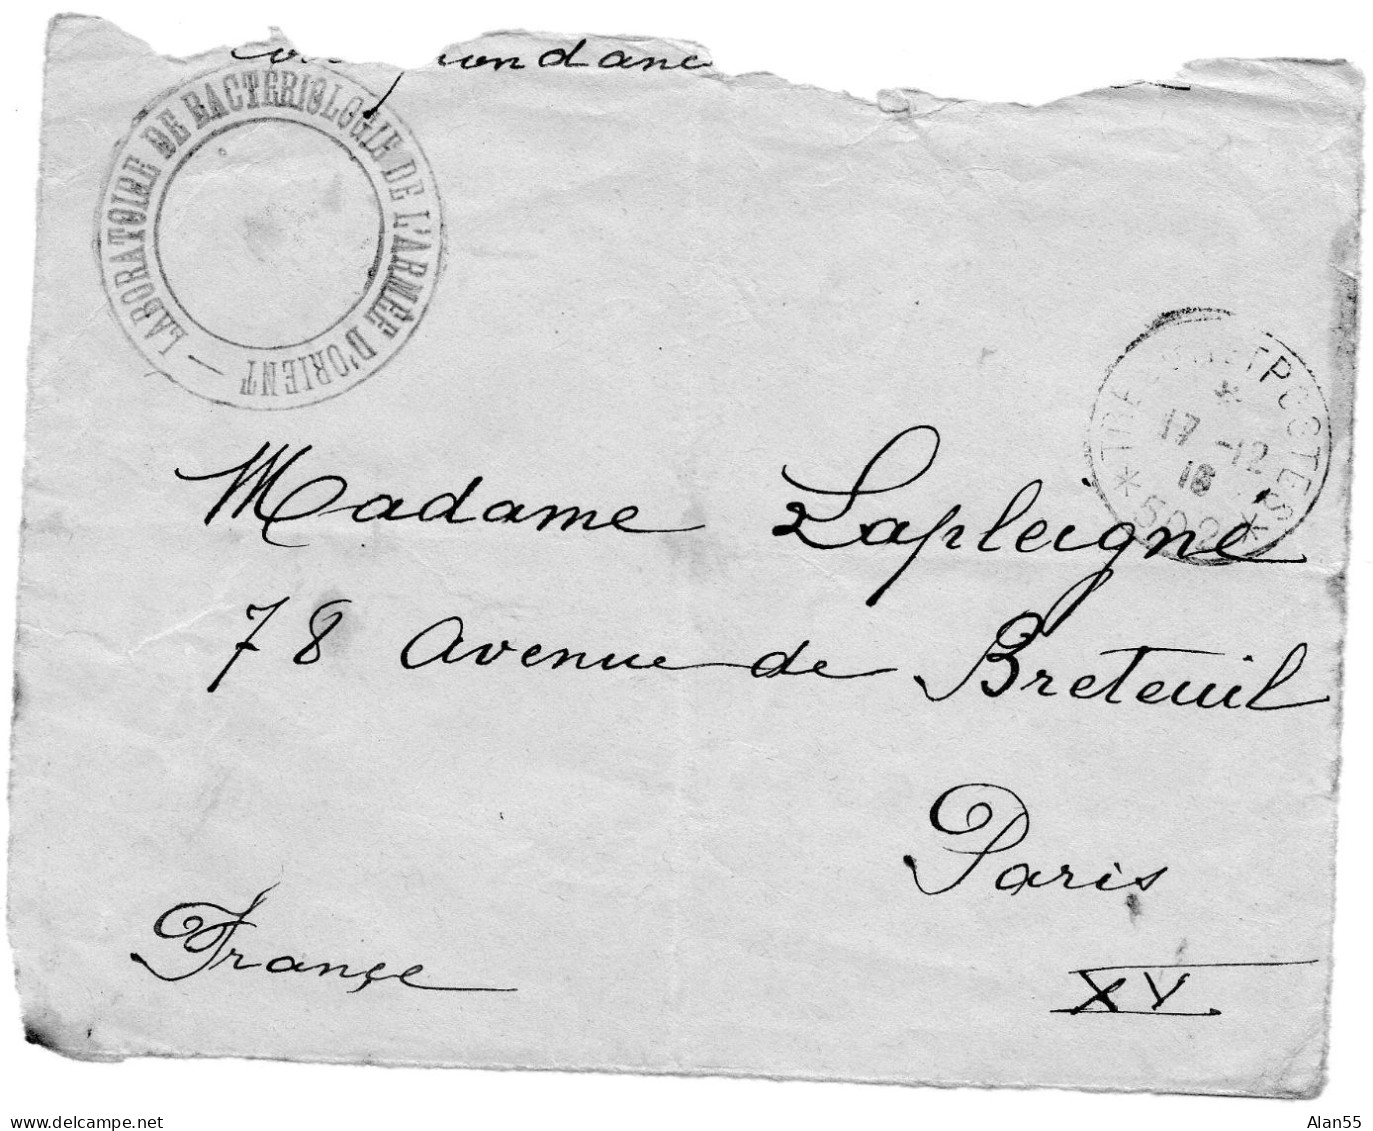 LABORATOIRE DE BACTERIOLOGIE DE L'ARMÉE D'ORIENT —
POSTES
17 -12
18
* 502 *
Madame Lapleigne
78 avenue de Breteuil
Paris
XV
France
delcampe.net
Alan55